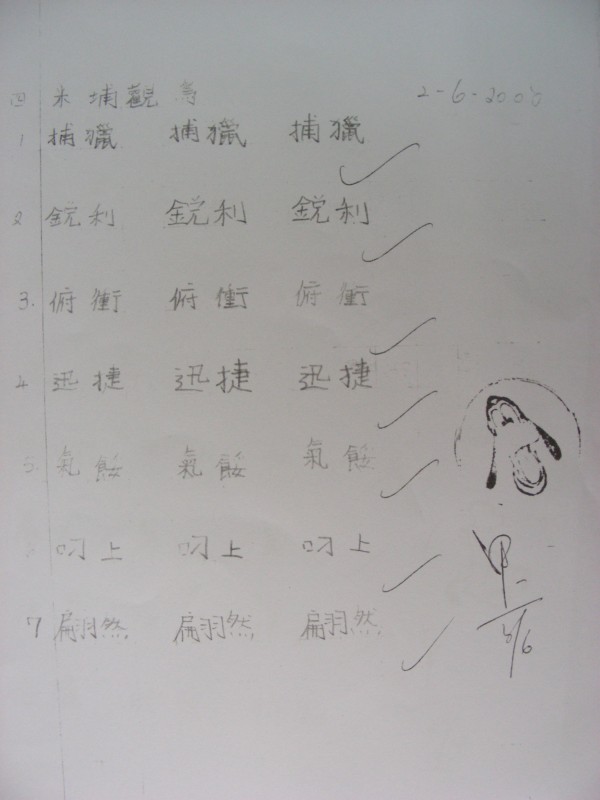 四 米埔觀鳥 2-6-2008
1 捕獵 捕獵 捕獵
2 銳利 銳利 銳利
3. 俯衝 俯衝 俯衝
4 迅捷 迅捷 迅捷
5. 氣餒 氣餒 氣餒
叼上 叼上 叼上
7 翩然 翩然 翩然
甲-
5/6